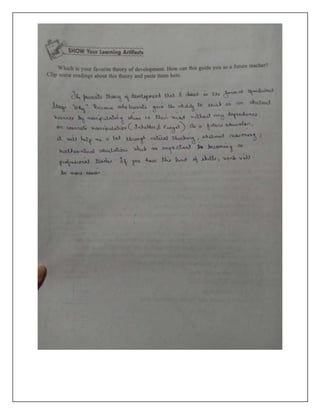 SHOW Your Learning Artifacts
Which is your favorite theory of development. How can this guide you as a future teacher?
Clip some readings about this theory and paste them here.
The favorite theory of development that I chose is the formal operational
stage. Why? Because adolescents gain the ability to think in an abstract
manner by manipulating ideas in their mind without any dependence
on concrete manipulation (Inhelder & Piaget). As a future educator,
it will help me a lot through critical thinking, abstract reasoning,
mathematical calculations which are important to becoming a
professional teacher. If you have this kind of skills, work will
be more